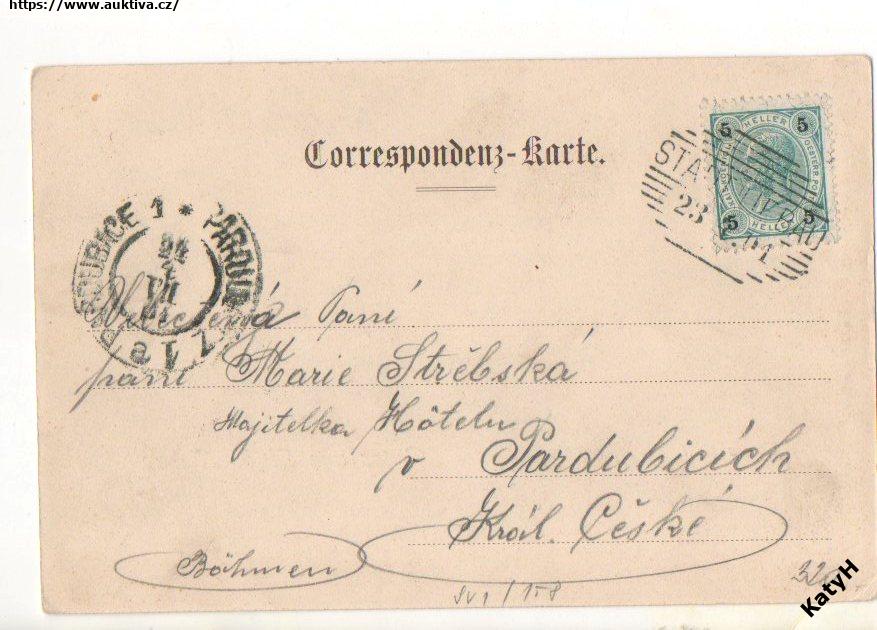 https://www.auktiva.cz/
Correspondenz-Karte.
5 HELLER 5
5 HELLER 5
23
PARDUBICE 1 * PARDUBICE 1
Veectená Paní
paní Marie Střebská
Majitelka Hôtelu
v Pardubicích
Král. České
Böhmen
KatyH